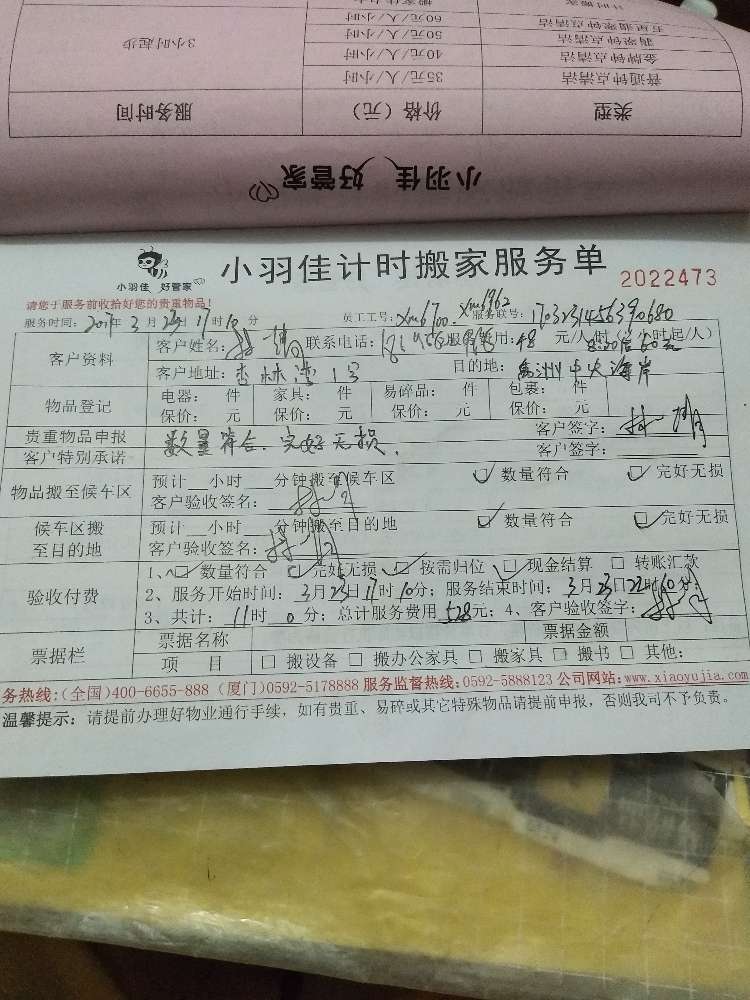 3小时起步
60元/人/小时
50元/人/小时
高级钟点清洁
40元/人/小时
金牌钟点清洁
35元/人/小时
普通钟点清洁
服务时间
价格(元)
类型
小羽佳 好管家
小羽佳 好管家
小羽佳计时搬家服务单 2022473
请您于服务前收拾好您的贵重物品!
服务时间:2017年3月23日17时10分 员工工号:xm6700.xm6962 服务联号:1703231456390680
客户资料 客户姓名: 联系电话: 服务费用:48 元/人/时(
客户地址:杏林湾1号 目的地:禹洲中央海岸
物品登记 电器: 件 家具: 件 易碎品: 件 包裹: 件
保价: 元 保价: 元 保价: 元 保价: 元
贵重物品申报 数量符合.完好无损. 客户签字:
客户特别承诺 客户签字:
物品搬至候车区 预计 小时 分钟搬至候车区 数量符合 完好无损
客户验收签名:
候车区搬至目的地 预计 小时 分钟搬至目的地 数量符合 完好无损
客户验收签名:
验收付费 1、 数量符合 完好无损 按需归位 现金结算 转账汇款
2、服务开始时间:3月23日17时10分;服务结束时间:3月23日22时60分;
3、共计:11时0分;总计服务费用528元;4、客户验收签字:
票据栏 票据名称 票据金额
项 目 搬设备 搬办公家具 搬家具 搬书 其他:
务热线:(全国)400-6655-888 (厦门)0592-5178888 服务监督热线:0592-5888123 公司网站:www.xiaoyujia.com
温馨提示:请提前办理好物业通行手续,如有贵重、易碎或其它特殊物品请提前申报,否则我司不予负责。